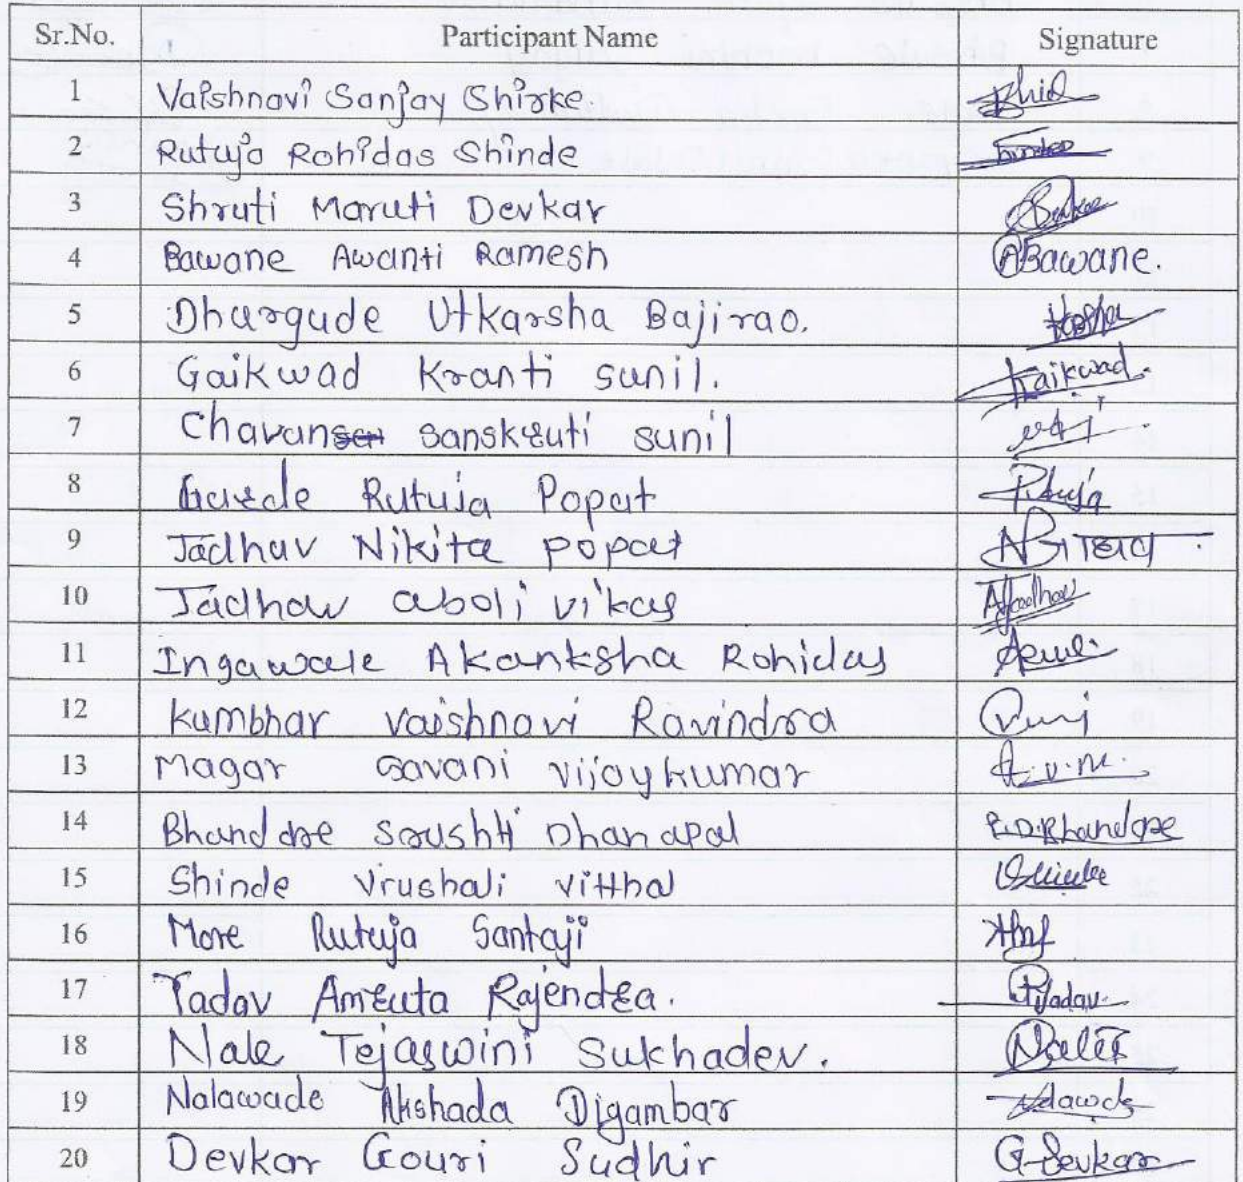 Sr.No. Participant Name Signature
1 Vaishnavi Sanjay Shirke
2 Rutuja Rohidas Shinde
3 Shruti Maruti Devkar
4 Bawane Awanti Ramesh ABawane.
5 Dhurgude Utkarsha Bajirao.
6 Gaikwad Kranti sunil. Gaikwad.
7 Chavan sanskruti sunil
8 Rutuja Poput Rutuja
9 Jadhav Nikita popat
10 Jadhav aboli vikas AJadhav
11 Ingawale Akanksha Rohidas
12 Kumbhar vaishnavi Ravindra
13 Magar Gavani vijaykumar
14 Bhandare Srushti Dhanapal
15 Shinde Vrushali vitthal
16 More Rutuja Santaji
17 Yadav Amruta Rajendra.
18 Nale Tejaswini Sukhadev.
19 Nalawade Akshada Digambar
20 Devkar Gouri Sudhir G-Devkar